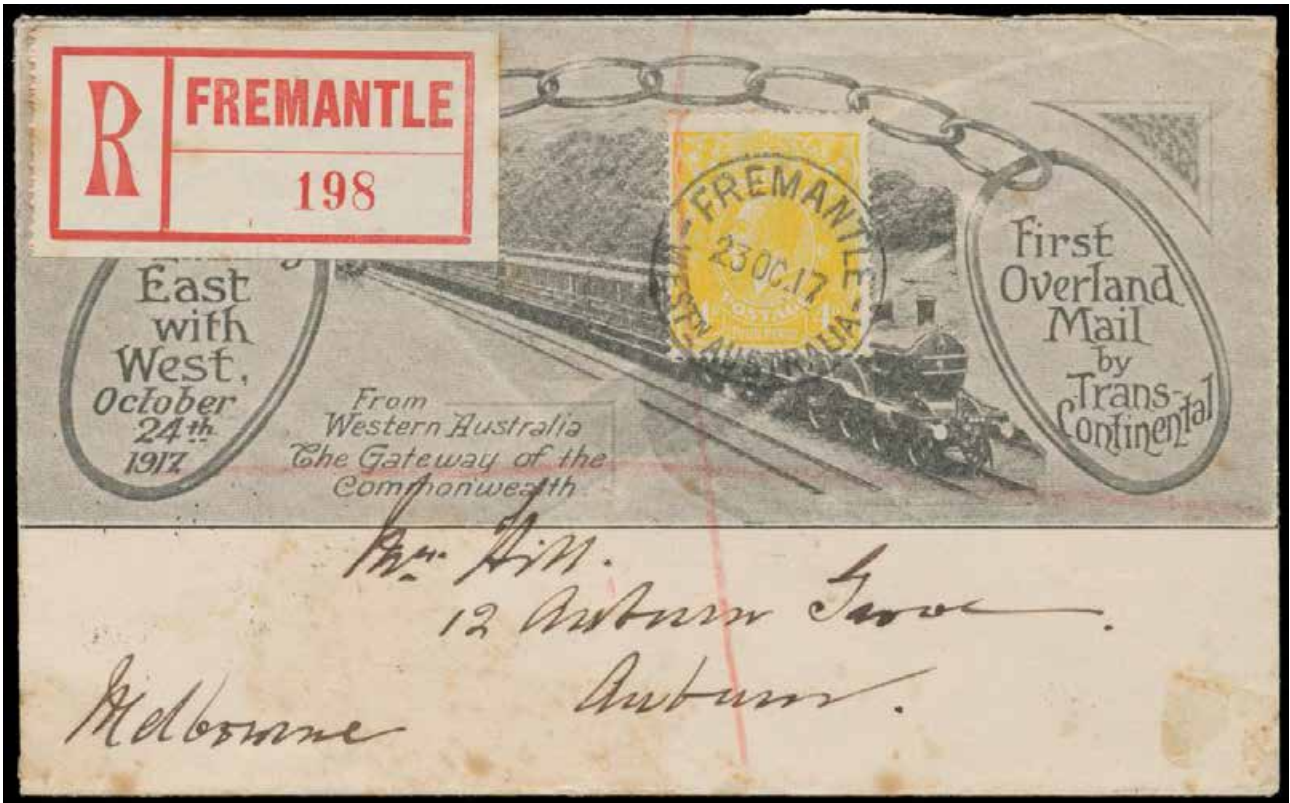 R
FREMANTLE
198
East
with
West,
October
24th
1917
From
Western Australia
The Gateway of the
Commonwealth
FREMANTLE
23 OC.17
WESTN AUSTRALIA
POSTAGE
First
Overland
Mail
by
Trans-
Continental
Mr. Hill.
12 Auburn Grove
Auburn.
Melbourne